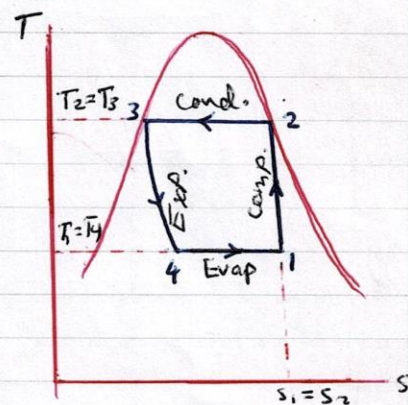 T
T2=T3 3 cond. 2
Exp.
Comp.
T1=T4
4 Evap 1
S
S1=S2